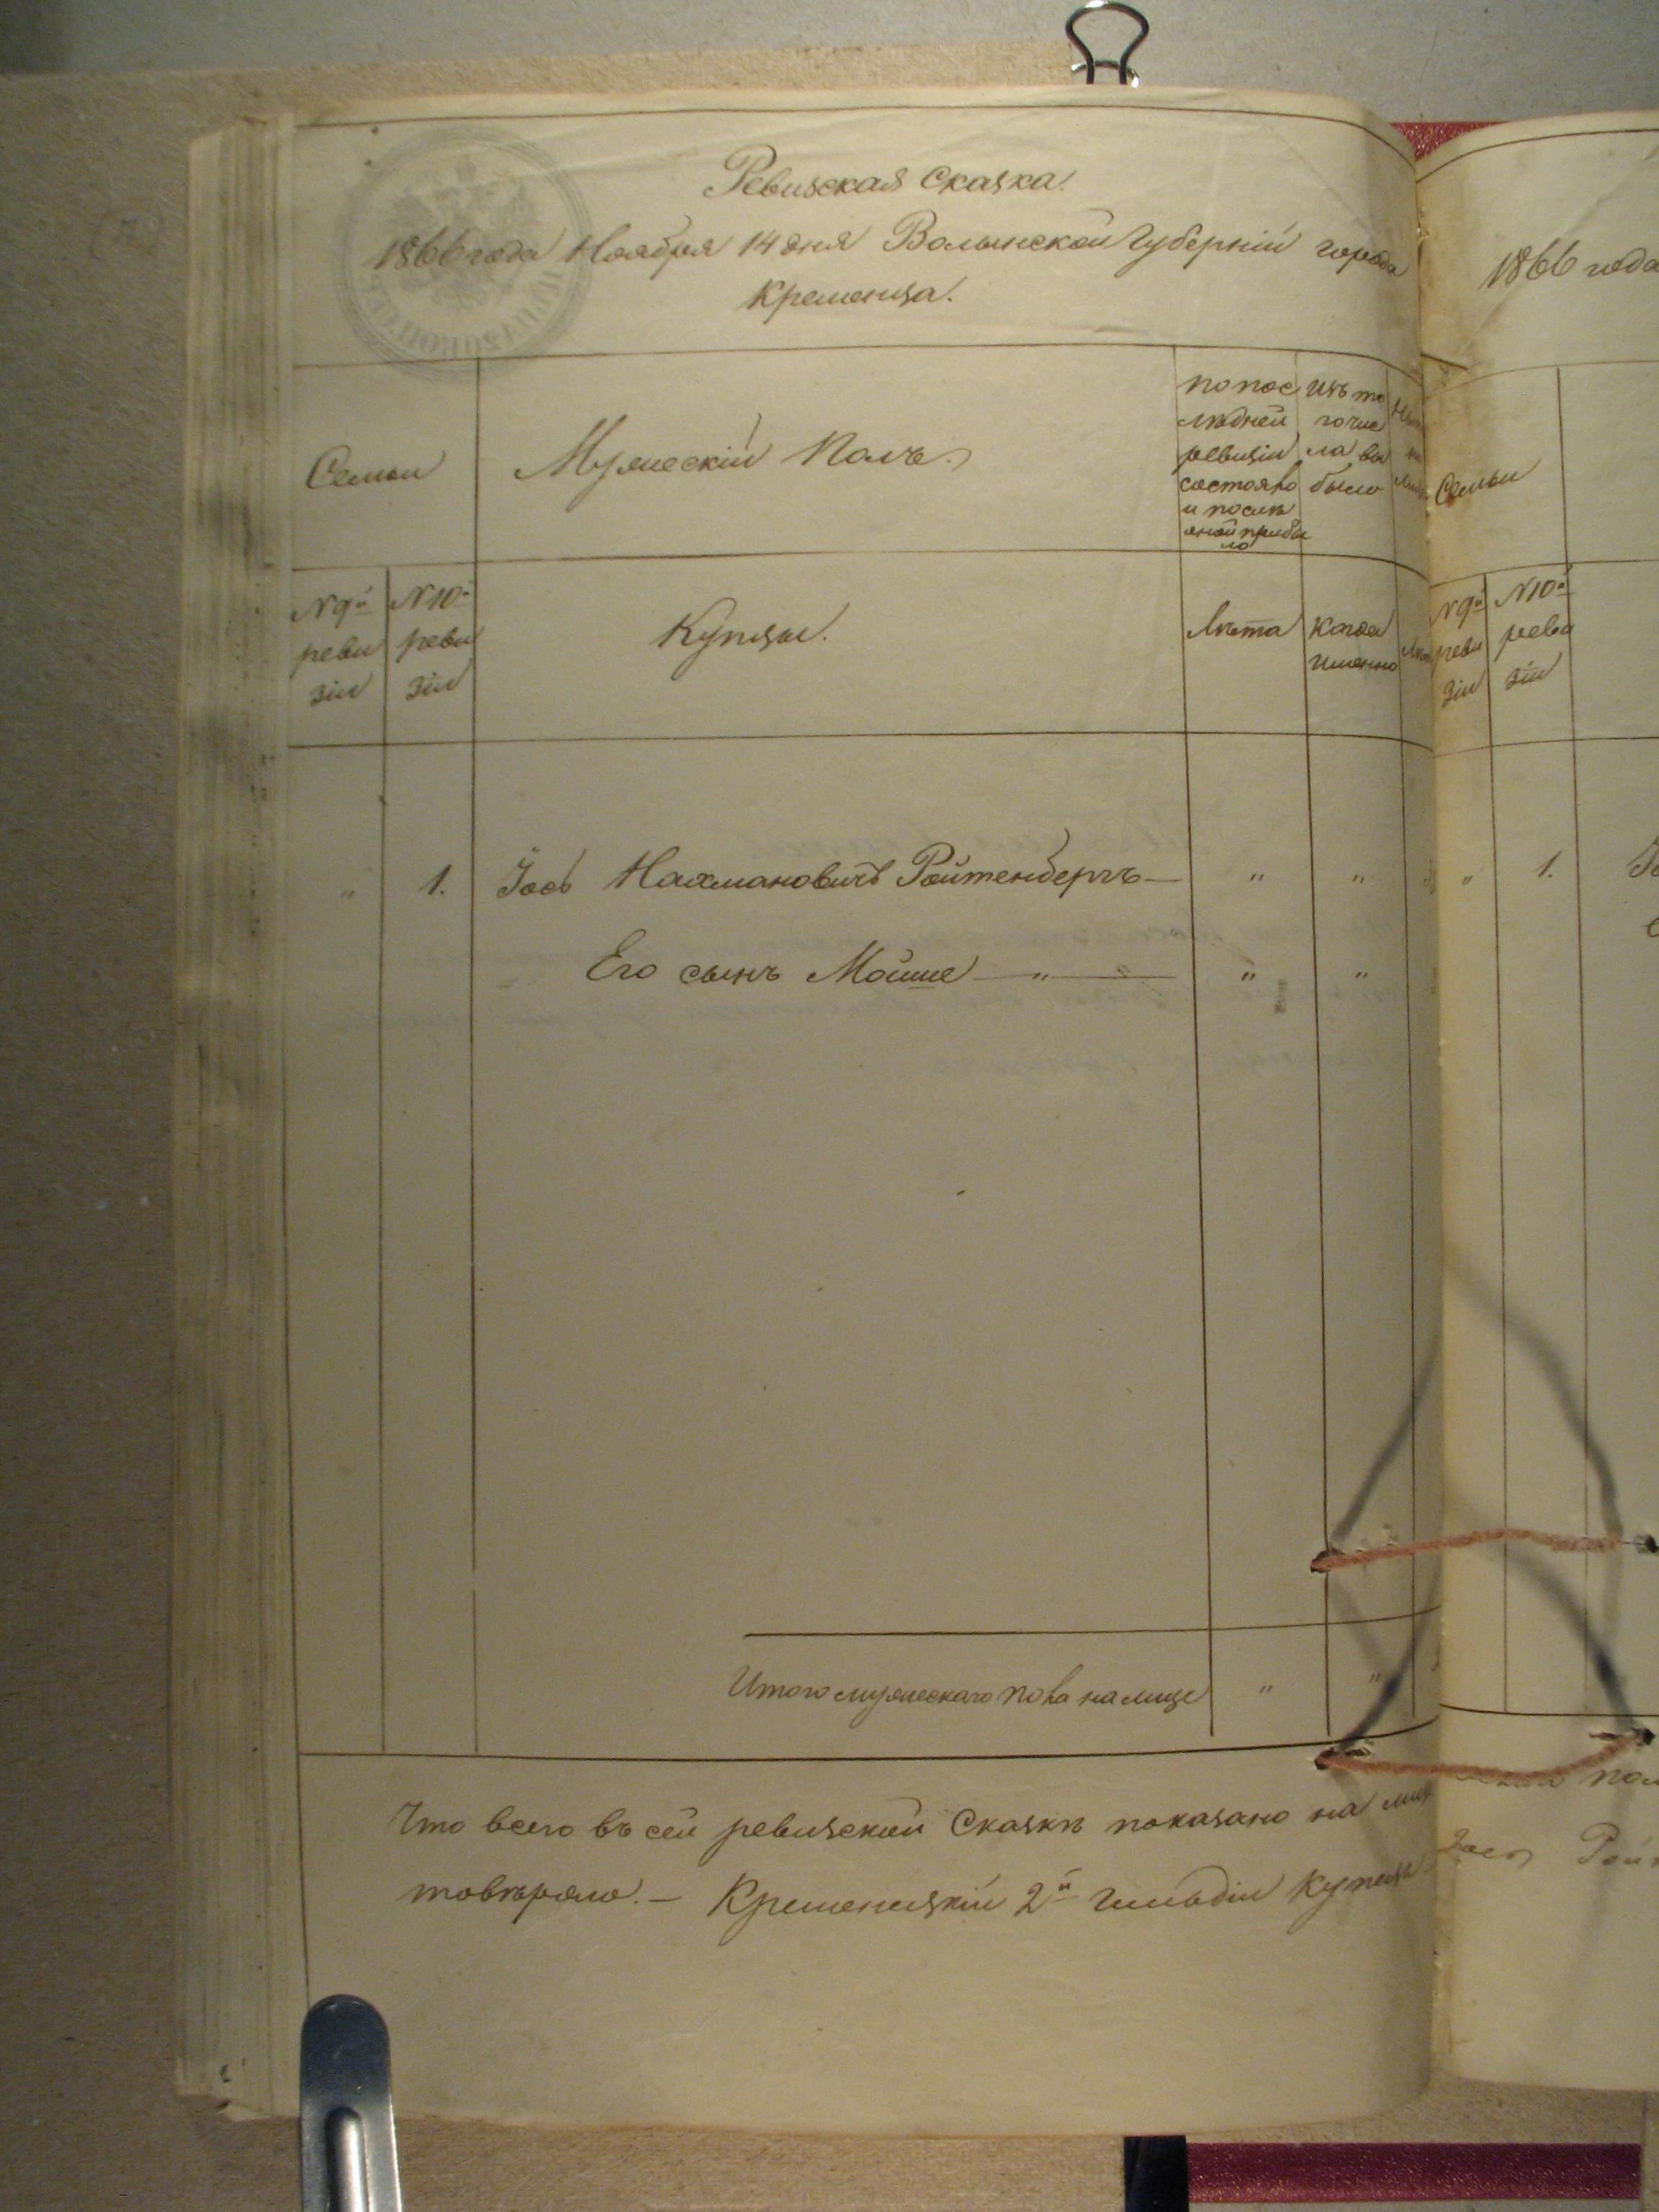 Ревизская Сказка.
1866 года Ноября 14 дня Волынской Губерніи города
Кременца.
Семьи
Мужескій Полъ.
по пос
лѣдней
ревизіи
состояло
и послѣ
оной прибы
ло
Изъ то
го чис
ла вы
было
№ 9й
реви
зіи
№ 10й
реви
зіи
Купцы.
Лѣта
Когда
именно
" 1. Іось Нахмановичъ Ройтенбергъ — " "
Его сынъ Мошше — " — " — " "
Итого мужескаго пола на лице " "
Что всего въ сей ревизской Сказкѣ показано на
Кременецкій 2й гильдіи Купецъ
1866 года
Семьи
№ 9й
реви
зіи
№ 10й
реви
зіи
" 1.